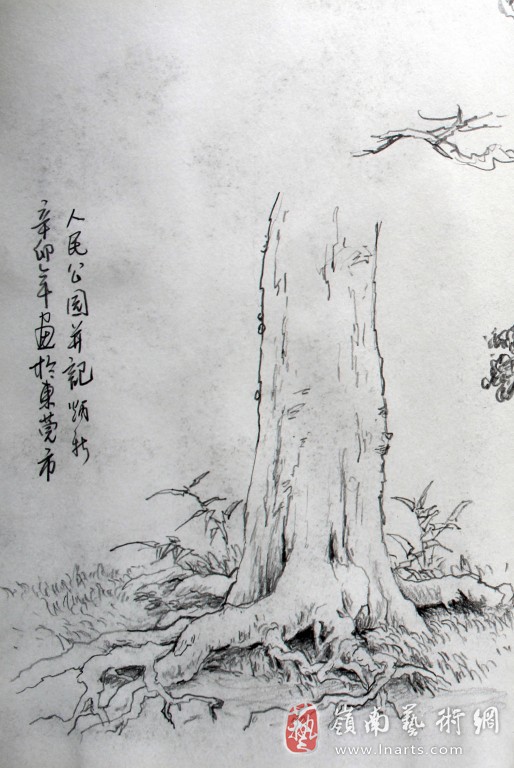 辛卯年画於東莞市
人民公園并記
藝
嶺南藝術網
www.lnarts.com